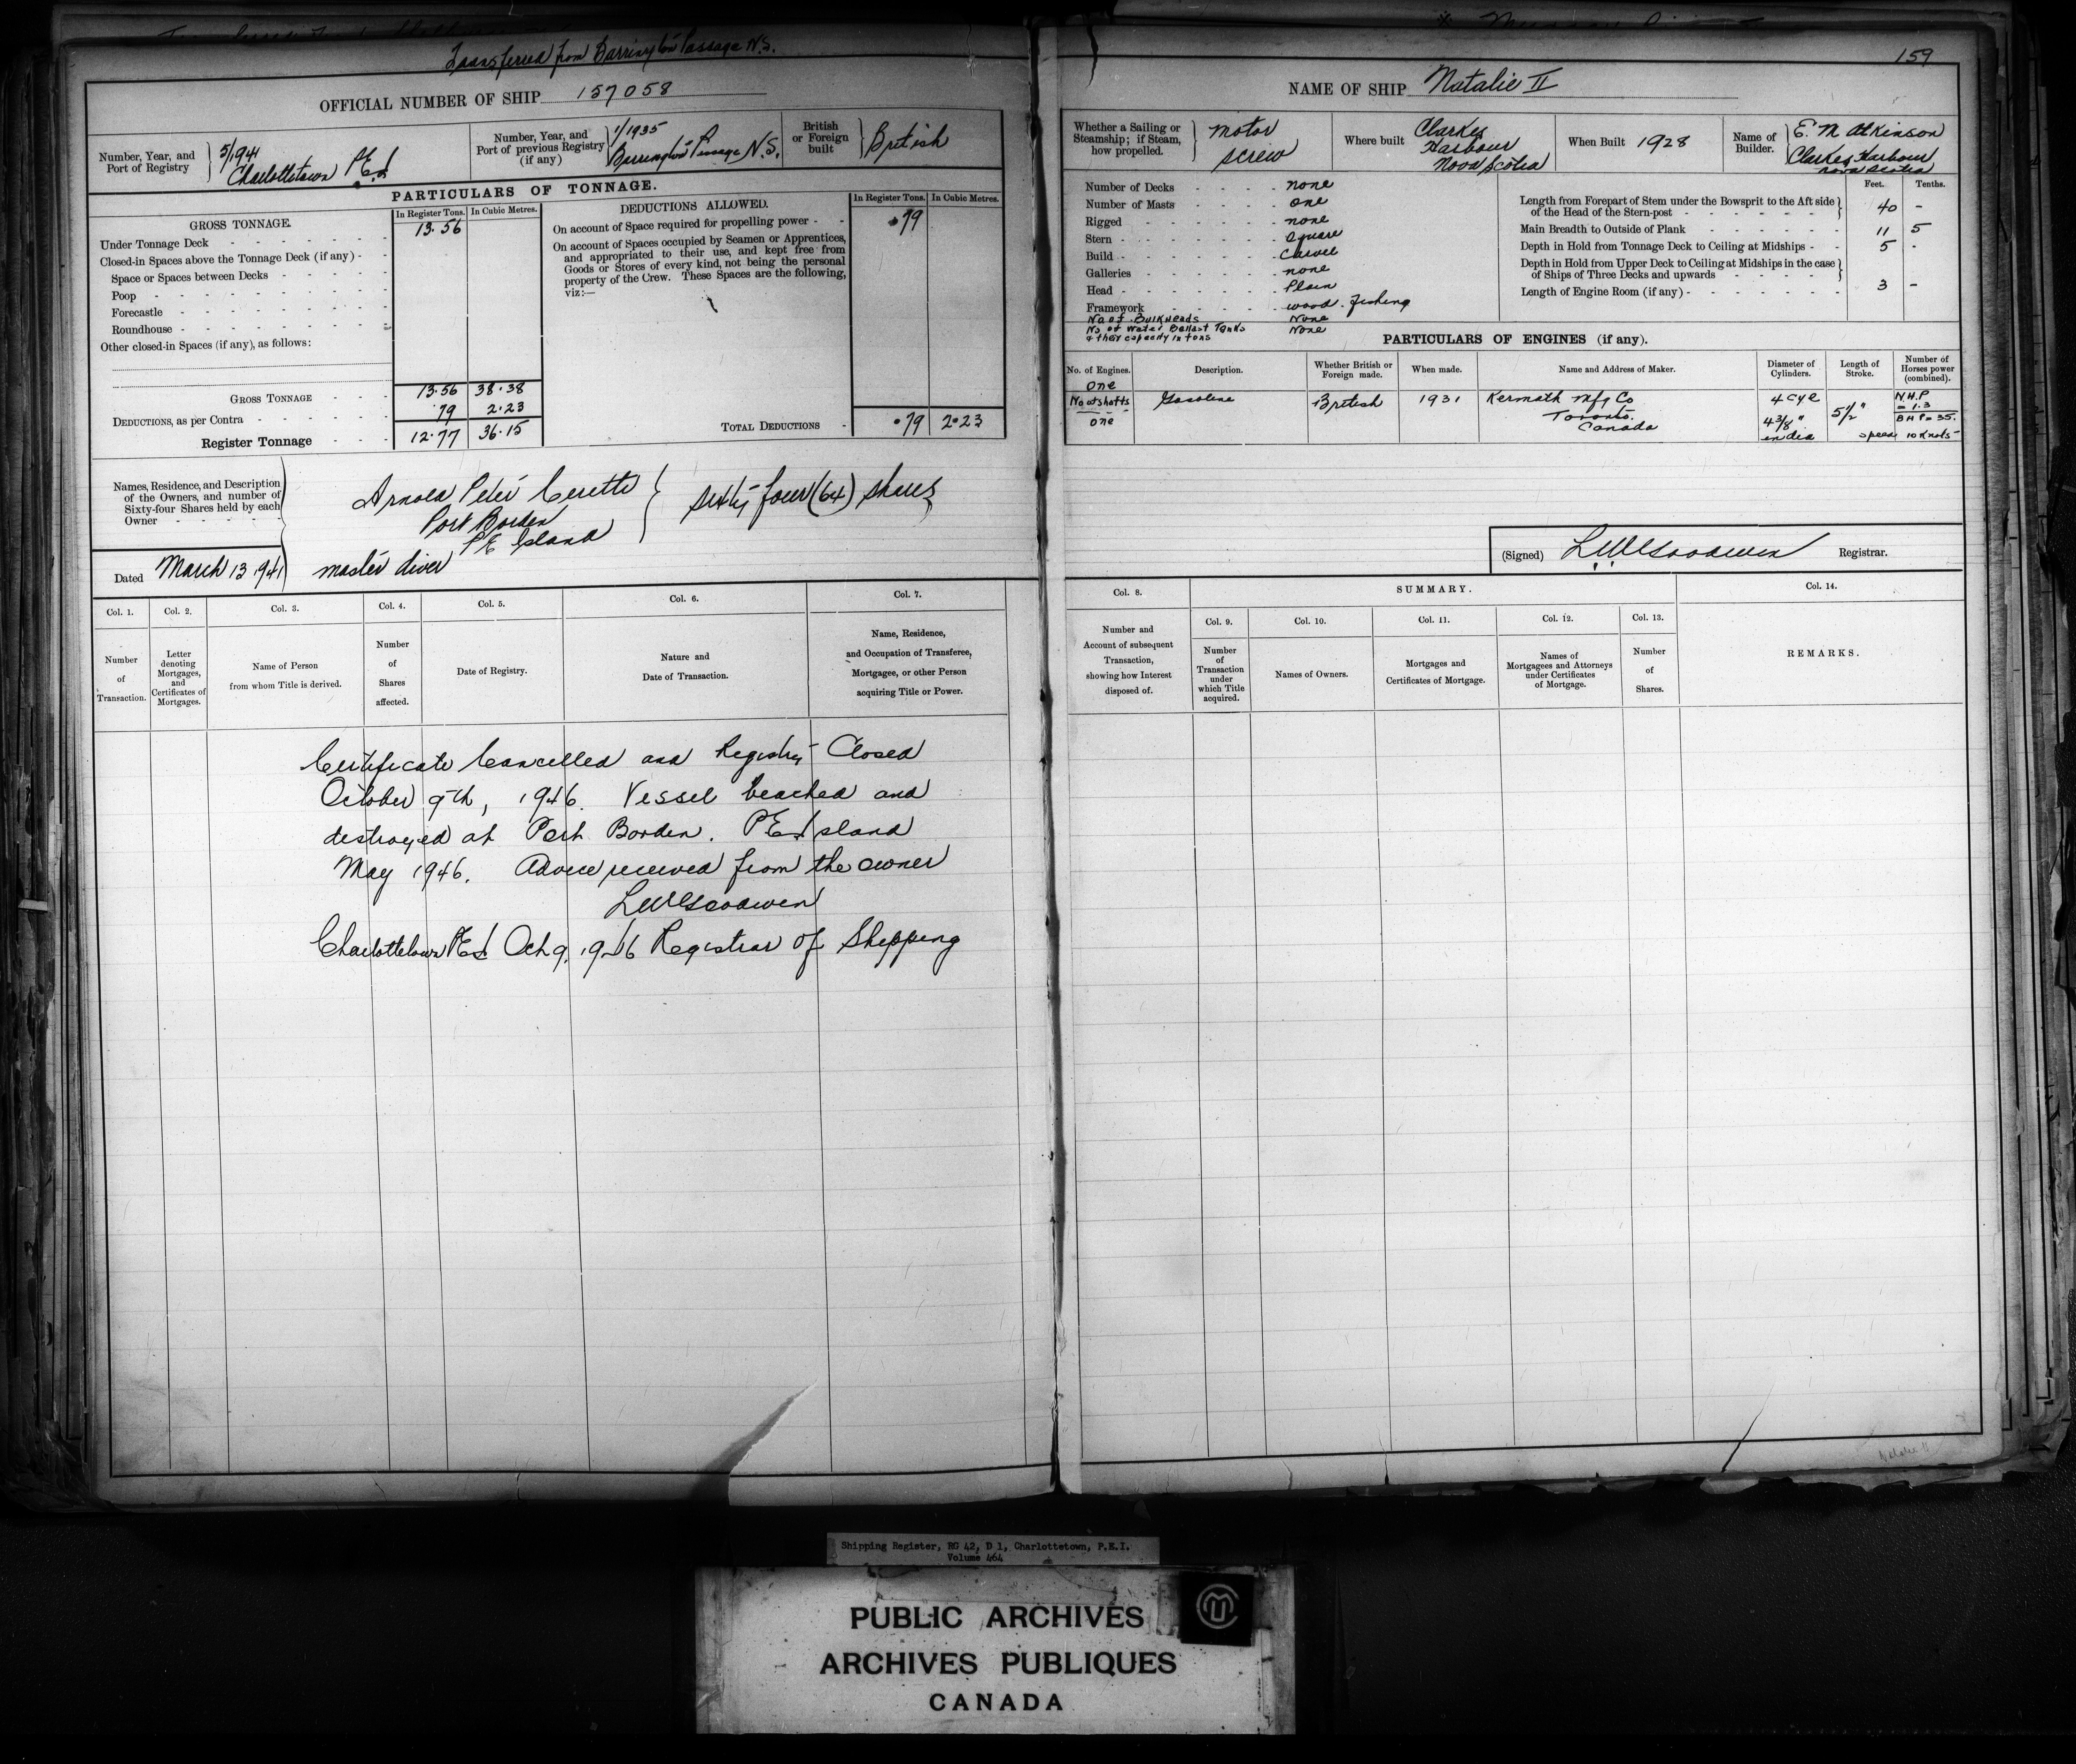 Transferred from Barrington Passage N.S.
159
OFFICIAL NUMBER OF SHIP 157058
NAME OF SHIP Natalie II
Number, Year, and
Port of Registry
5/1941
Charlottetown P.E.I.
Number, Year, and
Port of previous Registry
(if any)
1/1935
Barrington Passage N.S.
British
or Foreign
built
British
Whether a Sailing or
Steamship; if Steam,
how propelled.
motor
screw
Where built
Clarkes
Harbour
Nova Scotia
When Built 1928
Name of
Builder.
E. M Atkinson
Clarkes Harbour
nova Scotia
PARTICULARS OF TONNAGE.
GROSS TONNAGE.
In Register Tons. In Cubic Metres.
Under Tonnage Deck 13.56
Closed-in Spaces above the Tonnage Deck (if any)
Space or Spaces between Decks
Poop
Forecastle
Roundhouse
Other closed-in Spaces (if any), as follows:
GROSS TONNAGE 13.56 38.38
DEDUCTIONS, as per Contra .79 2.23
Register Tonnage 12.77 36.15
DEDUCTIONS ALLOWED.
In Register Tons. In Cubic Metres.
On account of Space required for propelling power .79
On account of Spaces occupied by Seamen or Apprentices,
and appropriated to their use, and kept free from
Goods or Stores of every kind, not being the personal
property of the Crew. These Spaces are the following,
viz:—
TOTAL DEDUCTIONS .79 2.23
Number of Decks none
Number of Masts one
Rigged none
Stern Square
Build Carvel
Galleries none
Head Plain
Framework wood. fishing
No of Bulkheads None
No of Water Ballast Tanks None
& their capacity in tons
Feet. Tenths.
Length from Forepart of Stem under the Bowsprit to the Aft side
of the Head of the Stern-post 40 -
Main Breadth to Outside of Plank 11 5
Depth in Hold from Tonnage Deck to Ceiling at Midships 5 -
Depth in Hold from Upper Deck to Ceiling at Midships in the case
of Ships of Three Decks and upwards
Length of Engine Room (if any) 3 -
PARTICULARS OF ENGINES (if any).
No. of Engines.
Description.
Whether British or
Foreign made.
When made.
Name and Address of Maker.
Diameter of
Cylinders.
Length of
Stroke.
Number of
Horses power
(combined).
One
No of shafts
one
Gasoline
British
1931
Kermath Mfg Co
Toronto.
Canada
4 Cyl
4 3/8"
in dia
5 1/2"
N.H.P
= 1.3
BHP = 35.
speed 10 Knots
Names, Residence, and Description
of the Owners, and number of
Sixty-four Shares held by each
Owner
Arnold Peter
Port Borden
P.E Island
master diver
sixty four (64) shares
Dated March 13 1941
(Signed) L.W. Goodwin Registrar.
Col. 1.
Number
of
Transaction.
Col. 2.
Letter
denoting
Mortgages,
and
Certificates of
Mortgages.
Col. 3.
Name of Person
from whom Title is derived.
Col. 4.
Number
of
Shares
affected.
Col. 5.
Date of Registry.
Col. 6.
Nature and
Date of Transaction.
Col. 7.
Name, Residence,
and Occupation of Transferee,
Mortgagee, or other Person
acquiring Title or Power.
Col. 8.
Number and
Account of subsequent
Transaction,
showing how Interest
disposed of.
SUMMARY.
Col. 9.
Number
of
Transaction
under
which Title
acquired.
Col. 10.
Names of Owners.
Col. 11.
Mortgages and
Certificates of Mortgage.
Col. 12.
Names of
Mortgagees and Attorneys
under Certificates
of Mortgage.
Col. 13.
Number
of
Shares.
Col. 14.
REMARKS.
Certificate Cancelled and Registry Closed
October 9th, 1946. Vessel beached and
destroyed at Port Borden. P.E Island
May 1946. Advice received from the owner
L.W. Goodwin
Charlottetown P.E.I Oct 9, 1946 Registrar of Shipping
Natalie II
Shipping Register, RG 42, D 1, Charlottetown, P.E.I.
Volume 464
PUBLIC ARCHIVES
ARCHIVES PUBLIQUES
CANADA